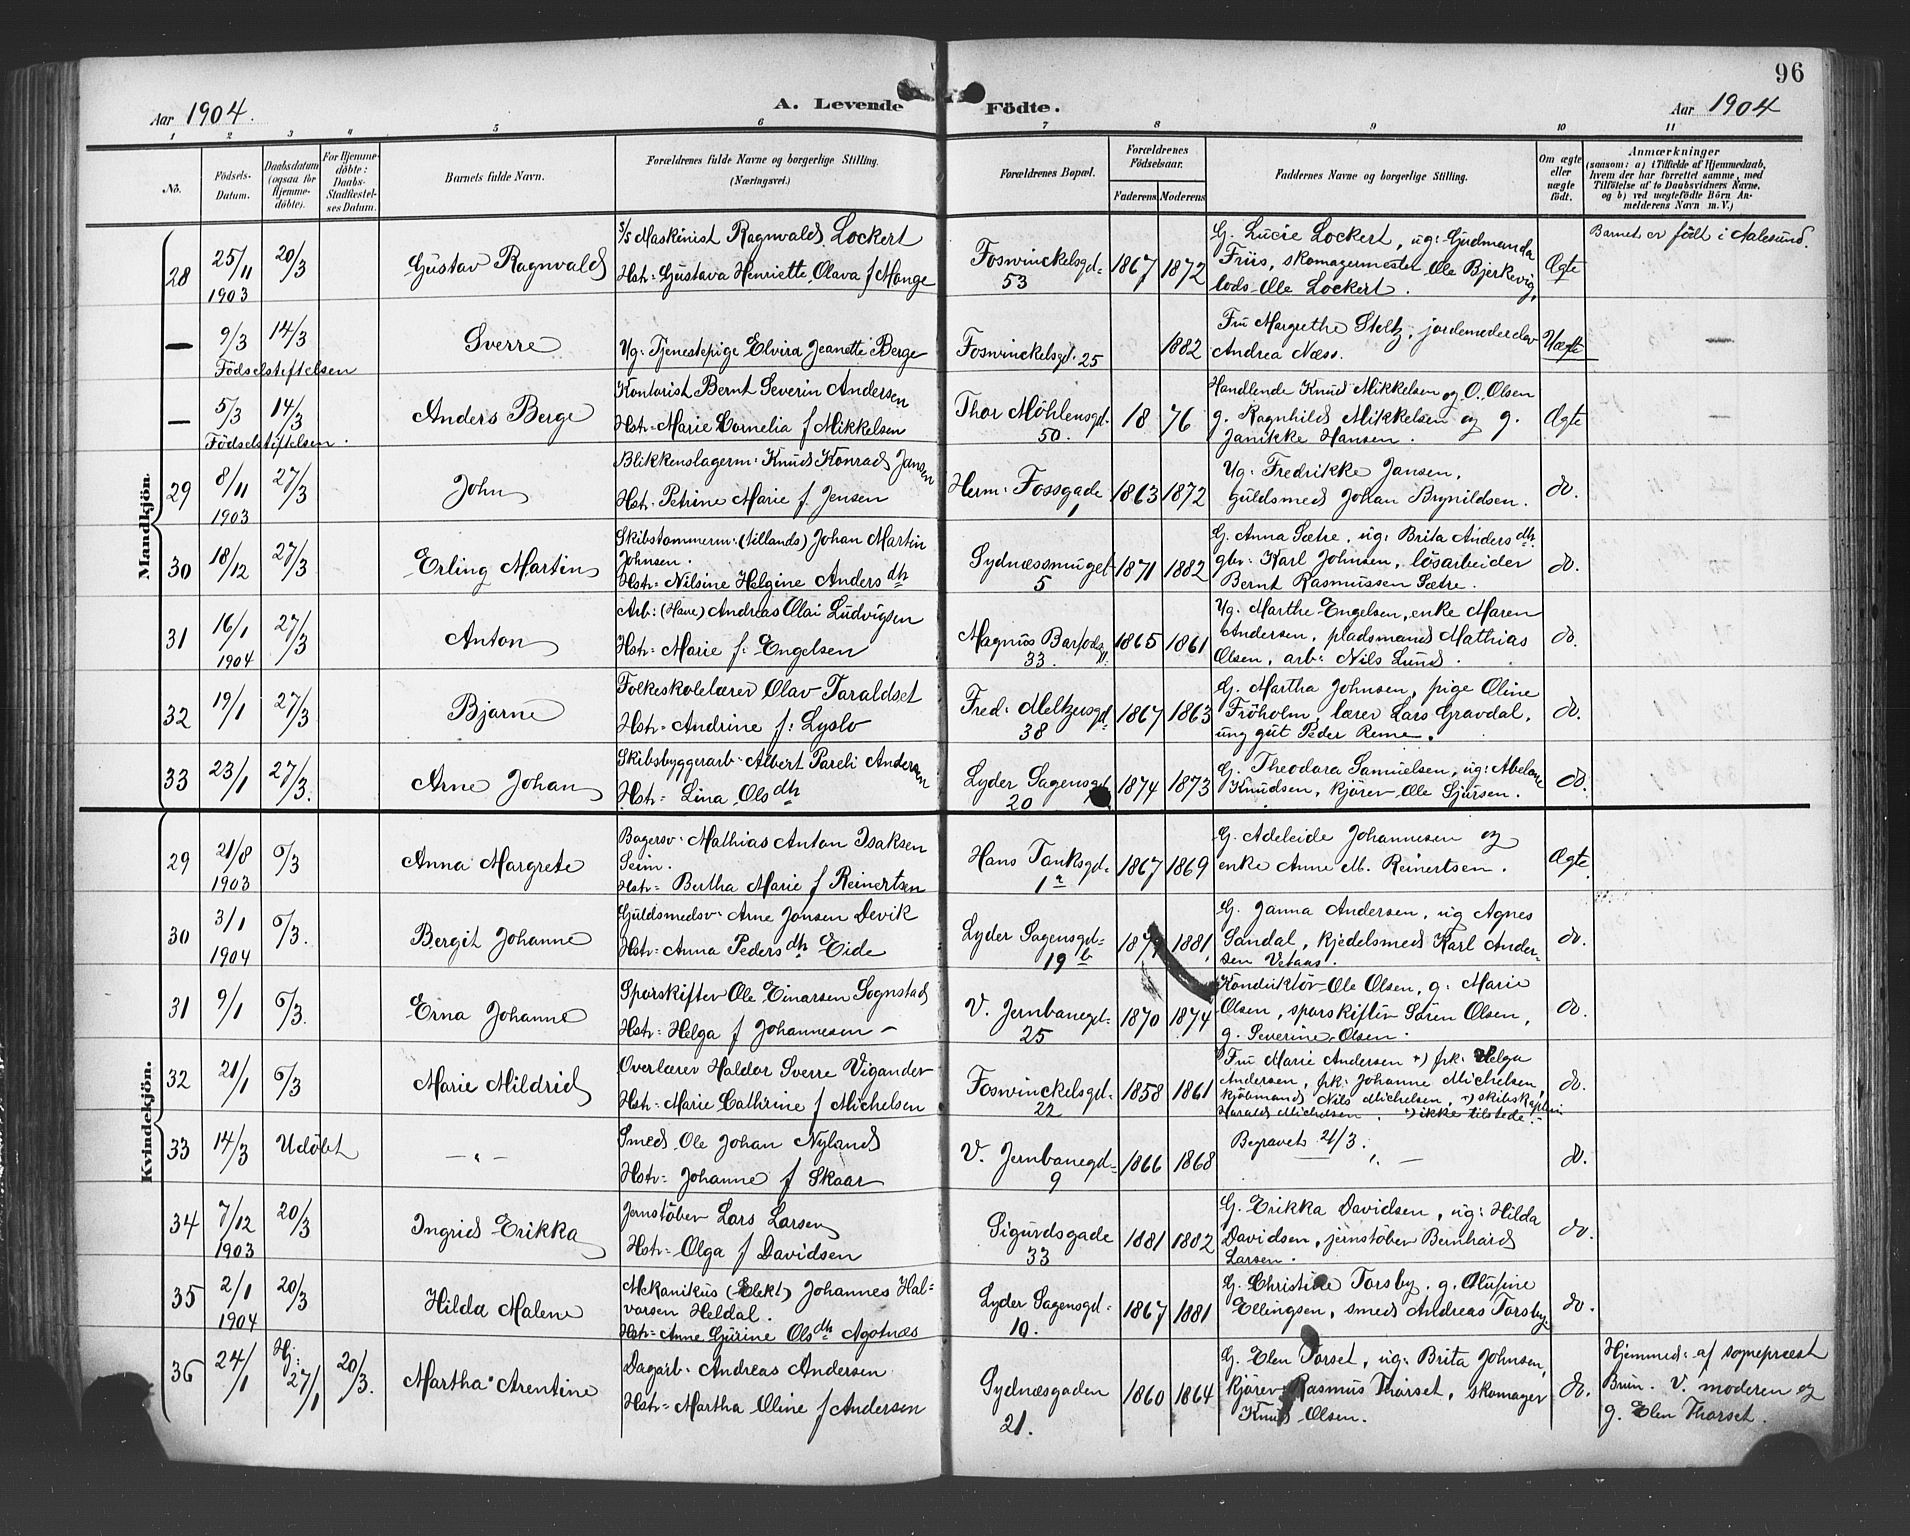 96
Aar 1904.
A. Levende Födte.
Aar 1904
1 2 3 4 5 6 7 8 9 10 11
No.
Födsels-Datum.
Daabsdatum (ogsaa for Hjemme-döbte).
For Hjemme-döbte: Daabs-Stadfæstel-ses Datum.
Barnets fulde Navn.
Forældrenes fulde Navne og borgerlige Stilling. (Næringsvei.)
Forældrenes Bopæl.
Forældrenes Födselsaar.
Faderens Moderens
Faddernes Navne og borgerlige Stilling.
Om ægte eller uægte födt.
Anmærkninger
(saasom: a) i Tilfælde af Hjemmedaab, hvem der har forrettet samme, med Tilföielse af to Daabsvidners Navne, og b) ved uægtefödte Börn An-melderens Navn m. V.)
Mandkjön.
28 25/11 1903 20/3 Gustav Ragnvald
S/S Maskinist Ragnvald Lockert
Hstr: Gustava Henriette Olava f Monge
Foswinckelsgd: 53 1867 1872
G. Lucie Lockert, ug: Gudmunda
Friis, skomagermester Ole Bjerkevig,
lods Ole Lockert.
Ægte
Barnet er født i Aalesund.
— 9/3 14/3 Sverre
Födselstiftelsen
Ug. Tjenestepige Elvira Jeanette Berge
Foswinckelsgd. 25 1882
Fru Margrethe Stoltz, jordemoderelev
Andrea Næss.
Uægte —
— 5/3 14/3 Anders Berge
Födselstiftelsen.
Kontorist Bernt Severin Andersen
Hstr: Marie Cornelia f Mikkelsen
Thor Möhlensgd. 50. 18 76
Handlende Knud Mikkelsen og O. Olsen
g. Ragnhild Mikkelsen og g.
Janikke Hansen.
Ægte —
29 8/11 1903 27/3 John
Blikkenslagerm: Knud Konrad Jansen
Hstr: Petrine Marie f. Jensen
Herm: Fossgade 1 1863 1872
Ug. Fredrikke Jansen,
Guldsmed Johan Brynildsen.
do.
30 18/12 27/3 Erling Martin
Skibstömmerm: (tillands) Johan Martin
Johnsen.
Hstr: Nilsine Helgine Andersdtr
Sydnæssmuget 5 1871 1882
G. Anna Sætre, ug: Brita Andersdtr.
gbr: Karl Johnsen, lösarbeider
Bernt Rasmussen Sætre.
do.
31 16/1 1904 27/3 Anton
Arb: (Have) Andreas Olai Ludvigsen
Hstr: Marie f: Engelsen
Magnus Barfods 33. 1865 1861
Ug. Marthe Engelsen, enke Maren
Andersen, pladsmand Mathias
Olsen, arb: Nils Lund.
do.
32 19/1 27/3 Bjarne
Folkeskolelærer Olav Taraldset
Hstr: Andrine f: Lyslo
Fred: Meltzersgd: 38 1867 1863
G. Martha Johnsen, pige Oline
Fröholm, lærer Lars Gravdal,
ung gut Peder Reme.
do.
33 23/1 27/3. Arne Johan
Skibsbyggerarb: Albert Pareli Andersen
Hstr: Lina Olsdtr
Lyder Sagensgd 20 1874 1873
G. Theodora Samuelsen, ug: Abelone
Knudsen, kjörer Ole Sjursen.
do.
Kvindekjön.
29 21/8 1903 6/3 Anna Margrete
Bagersv: Mathias Anton Isaksen
Seim.
Hstr: Bertha Marie f Reinertsen
Hans Tanksgd: 1a 1867 1869
G. Adeleide Johannesen og
enke Anne M. Reinertsen.
Ægte
30 3/1 1904 6/3. Bergit Johanne
Guldsmedsv: Arne Jonsen Devik
Hstr: Anna Pedersdtr Eide
Lyder Sagensgd: 19b 1881
G. Janna Andersen, ug Agnes
Sandal, kjedelsmed Karl Ander-
sen Vetaas.
do.
31 9/1 6/3. Erna Johanne
Sporskifter Ole Einarsen Sognstad
Hstr: Helga f Johannesen –
V. Jernbanegd: 25 1870 1874
Konduktör Ole Olsen, g: Marie
Olsen, sporskifter Sören Olsen,
g. Severine Olsen.
do.
32 21/1 6/3 Marie Mildrid
Overlærer Haldor Sverre Vigander
Hstr: Marie Cathrine f Michelsen
Foswinckelsgd: 22 1858 1861
Fru Marie Andersen +) frk: Helga
Andersen, frk: Johanne Michelsen,
kjöbmand Nils Michelsen, +) skibskaptein
Harald Michelsen. +) ikke tilstede.
do.
33 14/3 Udöbt — " —
Smed Ole Johan Nyland
Hstr: Johanne f Skaar
V. Jernbanegd: 9 1866 1868
Begravet 21/3.
— " —
do.
34 7/12 1903 20/3 Ingrid Erikka
Jernstöber Lars Larsen
Hstr: Olga f Davidsen
Sigurdsgade 33 1881 1882
G. Erikka Davidsen, ug: Hilda
Davidsen, jernstöber Bernhard
Larsen.
do.
35 2/1 1904 20/3 Hilda Malene
Mekanikus (Elekt) Johannes Hal-
vorsen Heldal.
Hstr: Anne Gurine Olsdtr Agotnæs
Lyder Sagensgd: 19. 1867 1881
G. Christine Torsby, g. Olufine
Ellingsen, smed Andreas Torsby.
do.
36 24/1 Hj: 27/1 20/3. Martha Arentine
Dagarb: Andreas Andersen
Hstr: Martha Oline f Andersen
Sydnæsgaden 21. 1860 1864
G. Elen Torset, ug: Brita Johnsen,
kjörer Rasmus Thorset, skomager
Knud Olsen.
do.
Hjemmed: af sognepræst
Brun. V. moderen og
g. Elen Thorset.